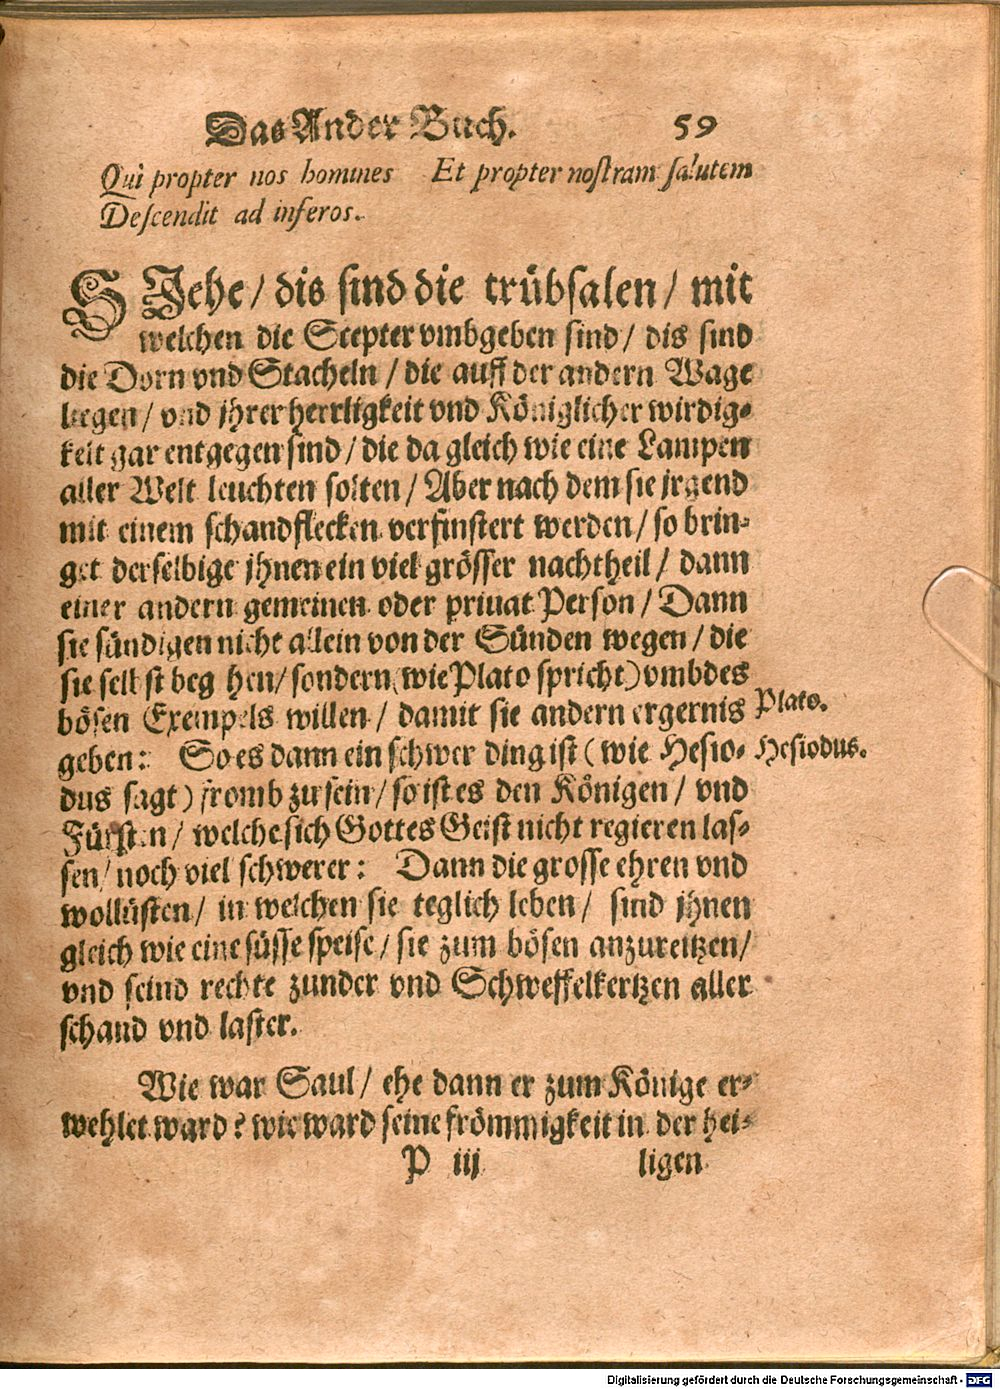 Das Ander Buch. 59
Qui propter nos homines Et propter nostram salutem
Descendit ad inferos.
SJehe / dis sind die trübsalen / mit
welchen die Scepter vmbgeben sind / dis sind
die Dorn vnd Stacheln / die auff der andern Wage
liegen / vnd jhrer herrligkeit vnd Königlicher wirdig-
keit gar entgegen sind / die da gleich wie eine Lampen
aller Welt leuchten solten / Aber nach dem sie jrgend
mit einem schandflecken verfinstert werden / so brin-
get derselbige jhnen ein viel grösser nachtheil / dann
einer andern gemeinen oder priuat Person / Dann
sie sündigen nicht allein von der Sünden wegen / die
sie selbst begehen / sondern (wie Plato spricht) vmb des
bösen Exempels willen / damit sie andern ergernis Plato.
geben: So es dann ein schwer ding ist (wie Hesio- Hesiodus.
dus sagt) fromb zu sein / so ist es den Königen / vnd
Fürsten / welche sich Gottes Geist nicht regieren las-
sen / noch viel schwerer: Dann die grosse ehren vnd
wollüsten / in welchen sie teglich leben / sind jhnen
gleich wie eine süsse speise / sie zum bösen anzureitzen /
vnd seind rechte zunder vnd Schweffelkertzen aller
schand vnd laster.
Wie war Saul / ehe dann er zum Könige er-
wehlet ward? wie ward seine frömmigkeit in der hei-
P iij ligen
Digitalisierung gefördert durch die Deutsche Forschungsgemeinschaft - DFG